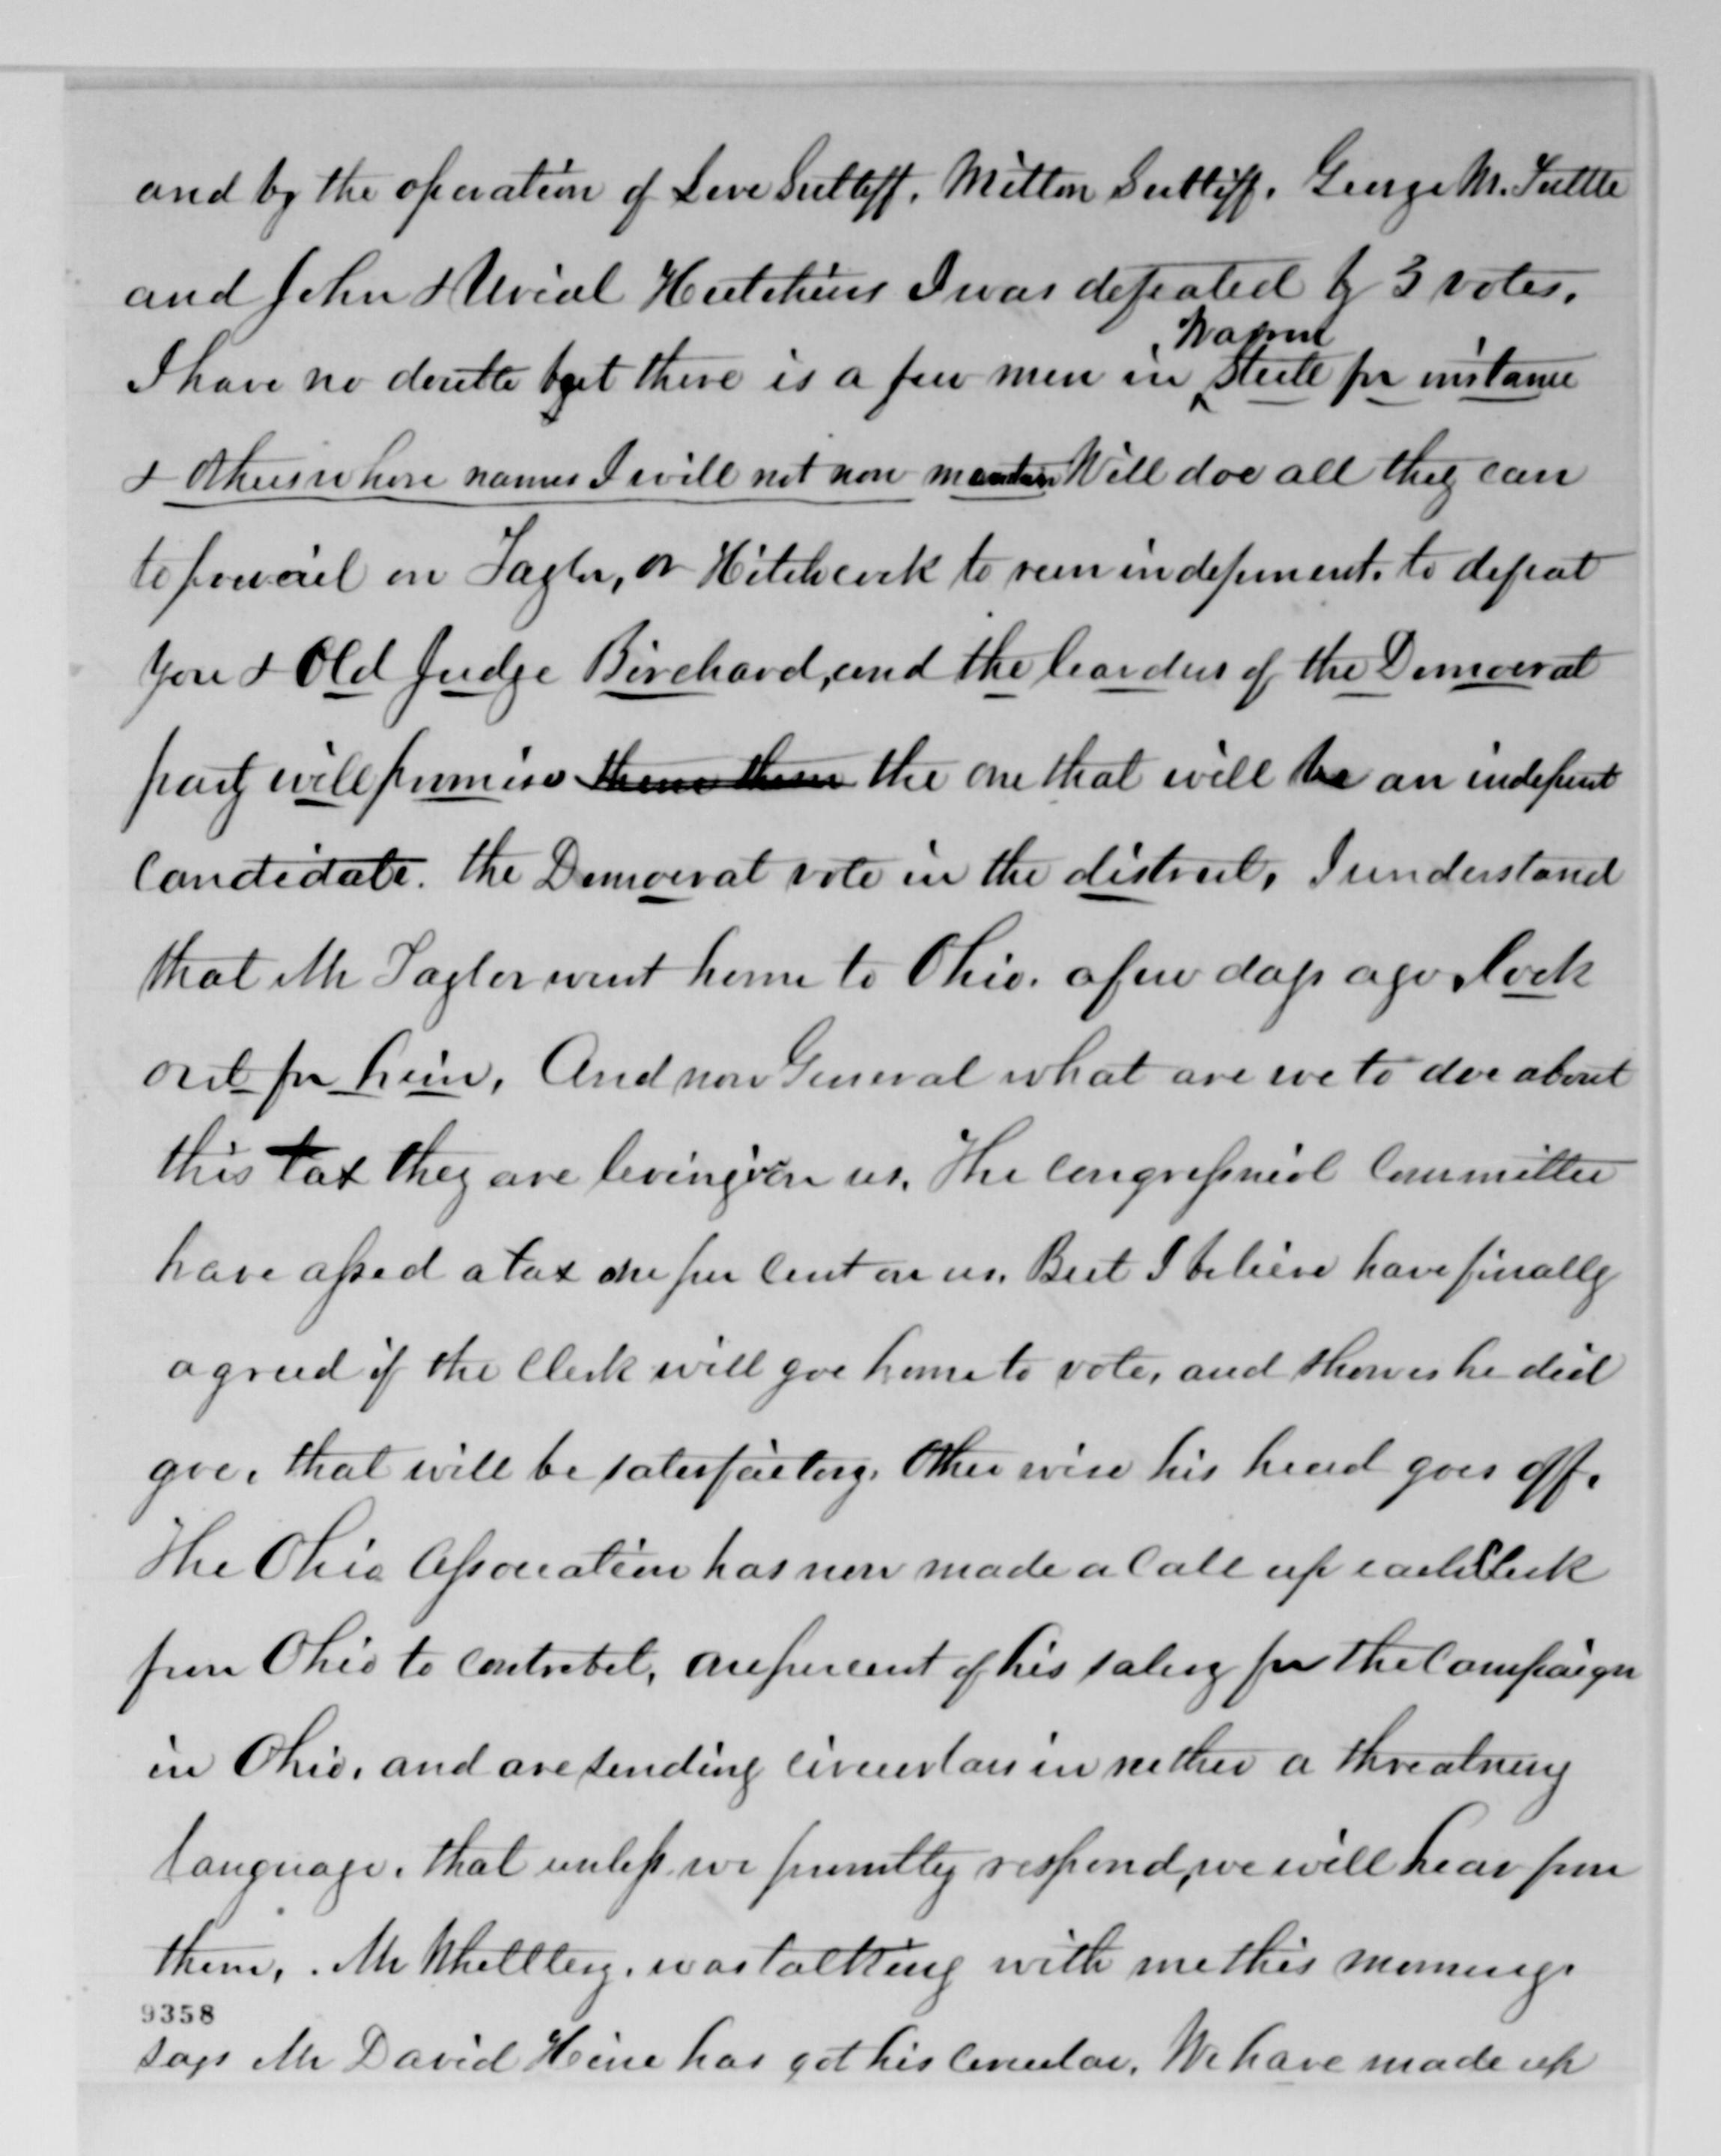 and by the operation of Leve Sutliff, Milton Sutliff, George M. Tuttle
and John & Urial Hutchins I was defeated by 3 votes,
I have no doutte but there is a few men in Warren Steele for instance
& others whose names I will not now mention Will doe all they can
to prevail on Taylor, or Hitchcock to run indepenent. to defeat
you & Old Judge Birchard, and the learders of the Democrat
party will promise them them the one that will be an indepent
Candidate. the Democrat vote in the distrect, I understand
that Mr Taylor went home to Ohio. a few days ago, look
out for him, And now General what are we to doe about
this tax they are leving on us. The Congressniol Committee
have assed a tax one per Cent on us. But I believe have finally
agreed if the Clerk will goe home to vote, and shows he did
goe, that will be satisfactory. Otherwise his head goes off.
The Ohio Association has now made a Call up each Clerk
from Ohio to Contrebet, one percent of his salery for the Campaign
in Ohio, and are sending circurlars in rether a threatning
language. that unless we promtly respond, we will hear from
them, . Mr Whittlesy. was talking with me this morning.
9358
says Mr David Heine has got his Cerculor, We have made up